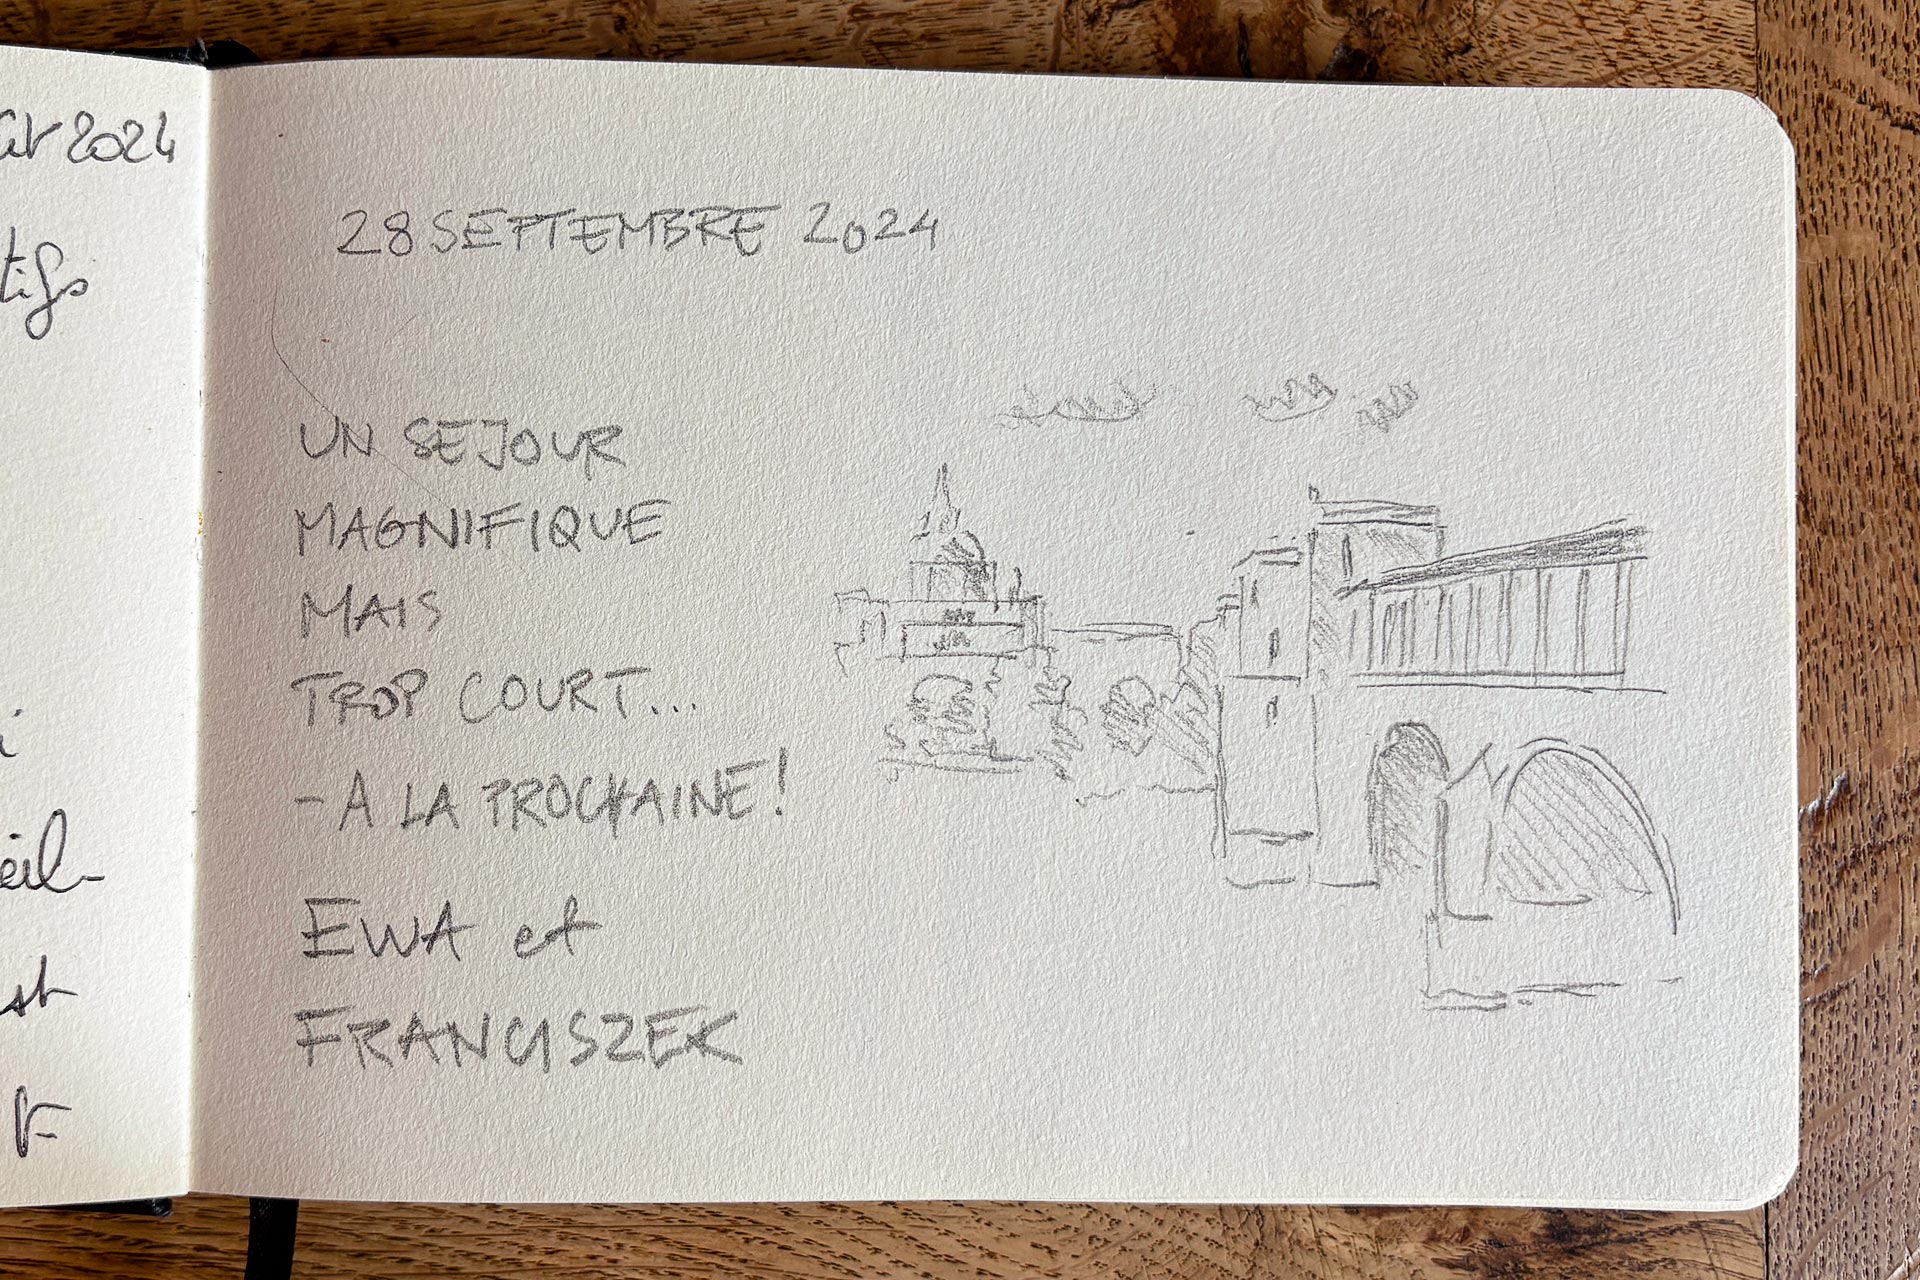 2024
28 SEPTEMBRE 2024
UN SEJOUR
MAGNIFIQUE
MAIS
TROP COURT...
- A LA PROCHAINE!
EWA et
FRANCISZEK